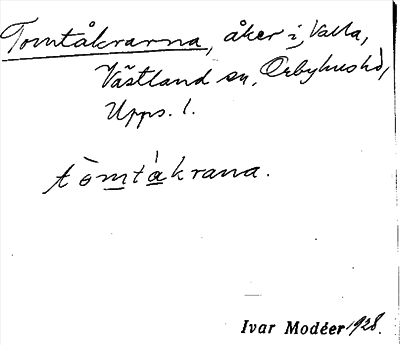 Tomtåkrarna, åker i Valla,
Västland sn, Örbyhus hd,
Upps. l.
tòmtákrana.
Ivar Modéer 1928.